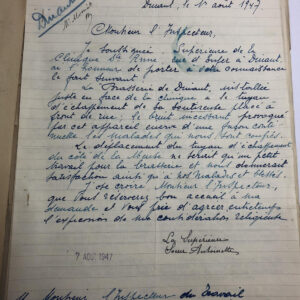 Dinant
Dinant, le 1er août 1947
Monsieur l'Inspecteur,
Je soussignée Supérieure de la
Clinique Ste Anne, rue d'Enfer à Dinant,
ai l'honneur de porter à votre connaissance
le fait suivant
La Brasserie de Dinant, installée
juste en face de la clinique a le tuyau
d'échappement de sa boutireuse placé à
front de rue; le bruit incessant provoqué
par cet appareil énerve d'une façon conti-
nuelle les malades qui nous sont confiés.
Le déplacement du tuyau d'échappement
du côté de la Meuse ne serait qu'un petit
travail pour la brasserie et nous donnerait
satisfaction ainsi qu'à nos malades et blessés.
J'ose croire, Monsieur l'Inspecteur,
que vous réserverez bon accueil à ma
demande et vous prie d'agréer entretemps
l'expression de ma considération religieuse
La Supérieure
Soeur Antoinette
7 AOU 1947
Monsieur l'Inspecteur du Travail